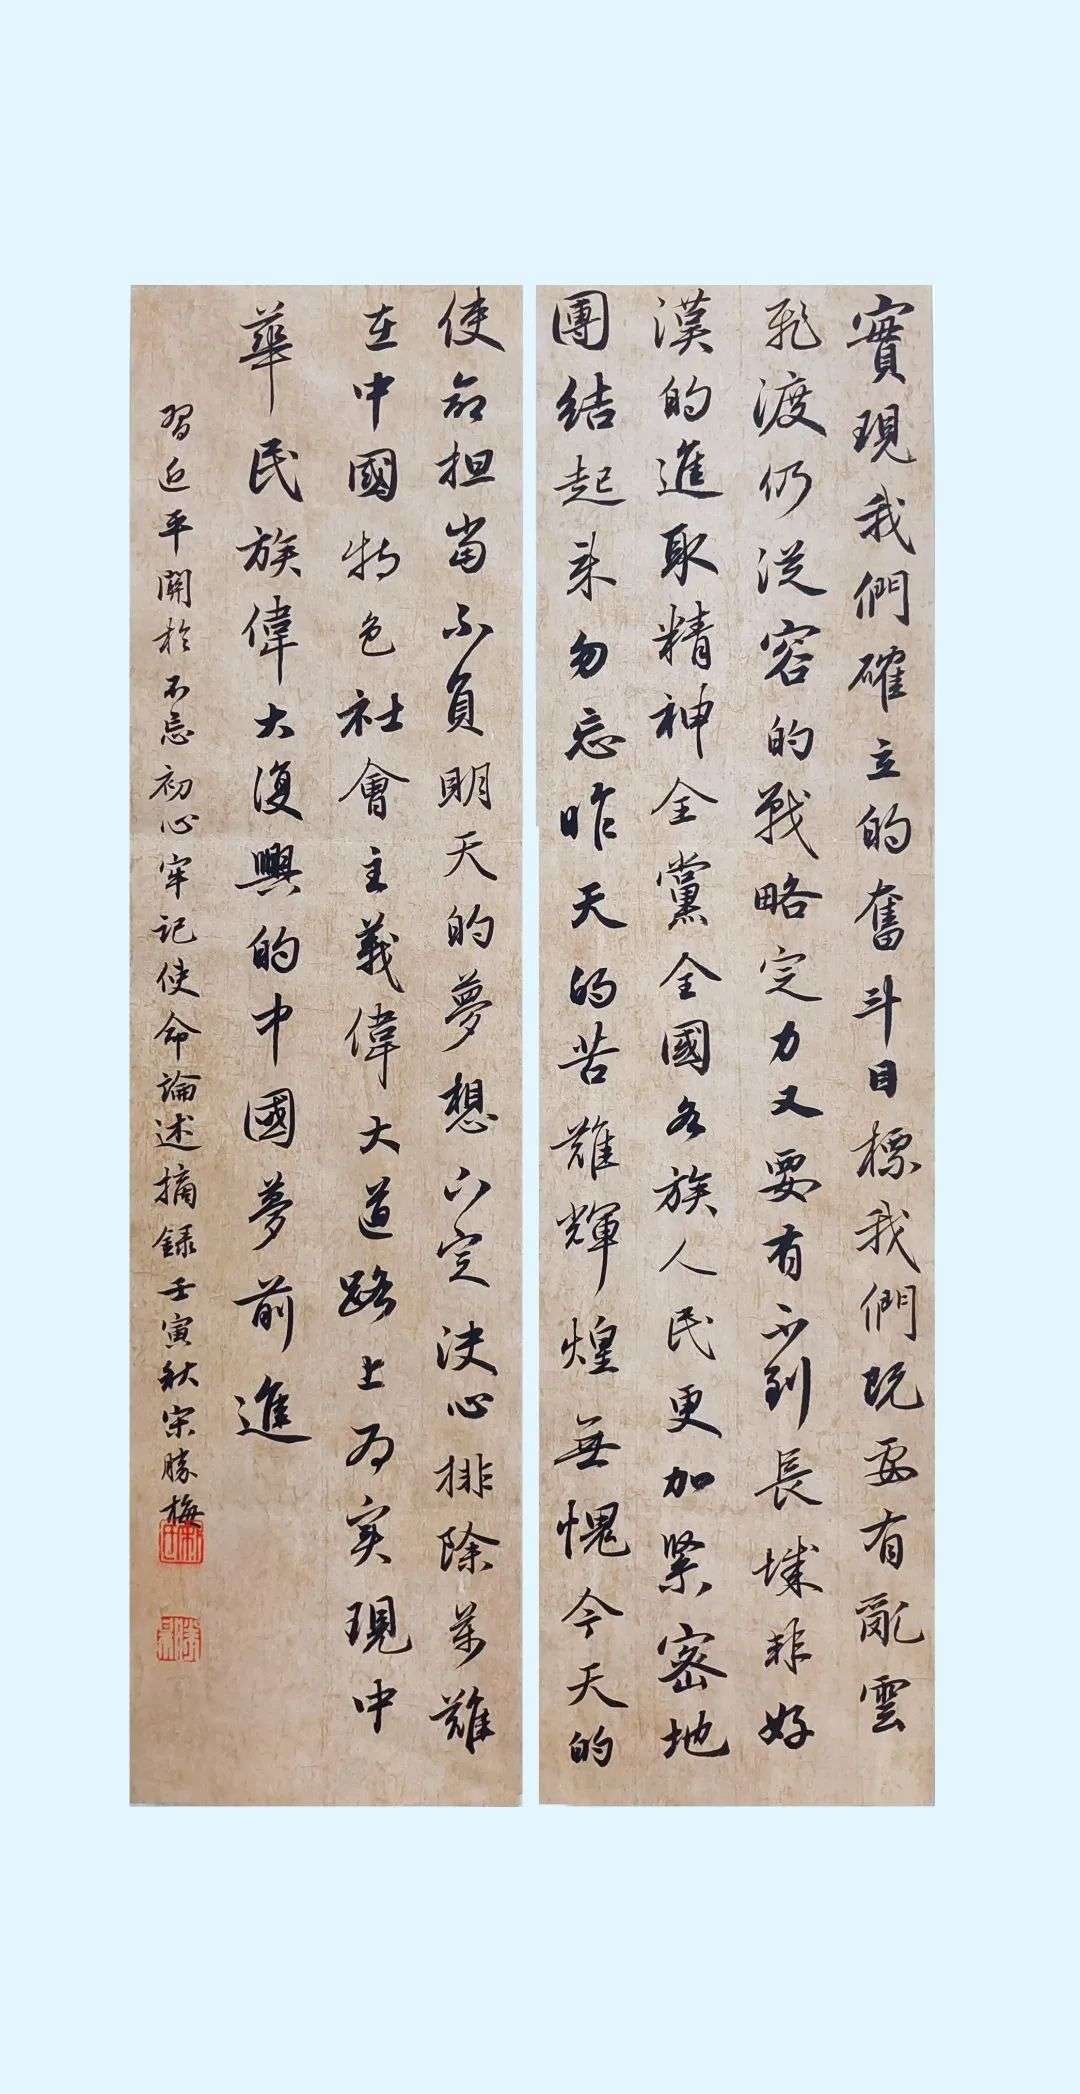 實現我們確立的奮斗目標我們既要有亂雲
飛渡仍從容的戰略定力又要有不到長城非好
漢的進取精神全黨全國各族人民更加緊密地
團結起來勿忘昨天的苦難輝煌無愧今天的
使命担當不負明天的夢想下定決心排除萬難
在中國特色社會主義偉大道路上為实現中
華民族偉大復興的中國夢前進
習近平關於不忘初心牢记使命論述摘録壬寅秋宋勝梅